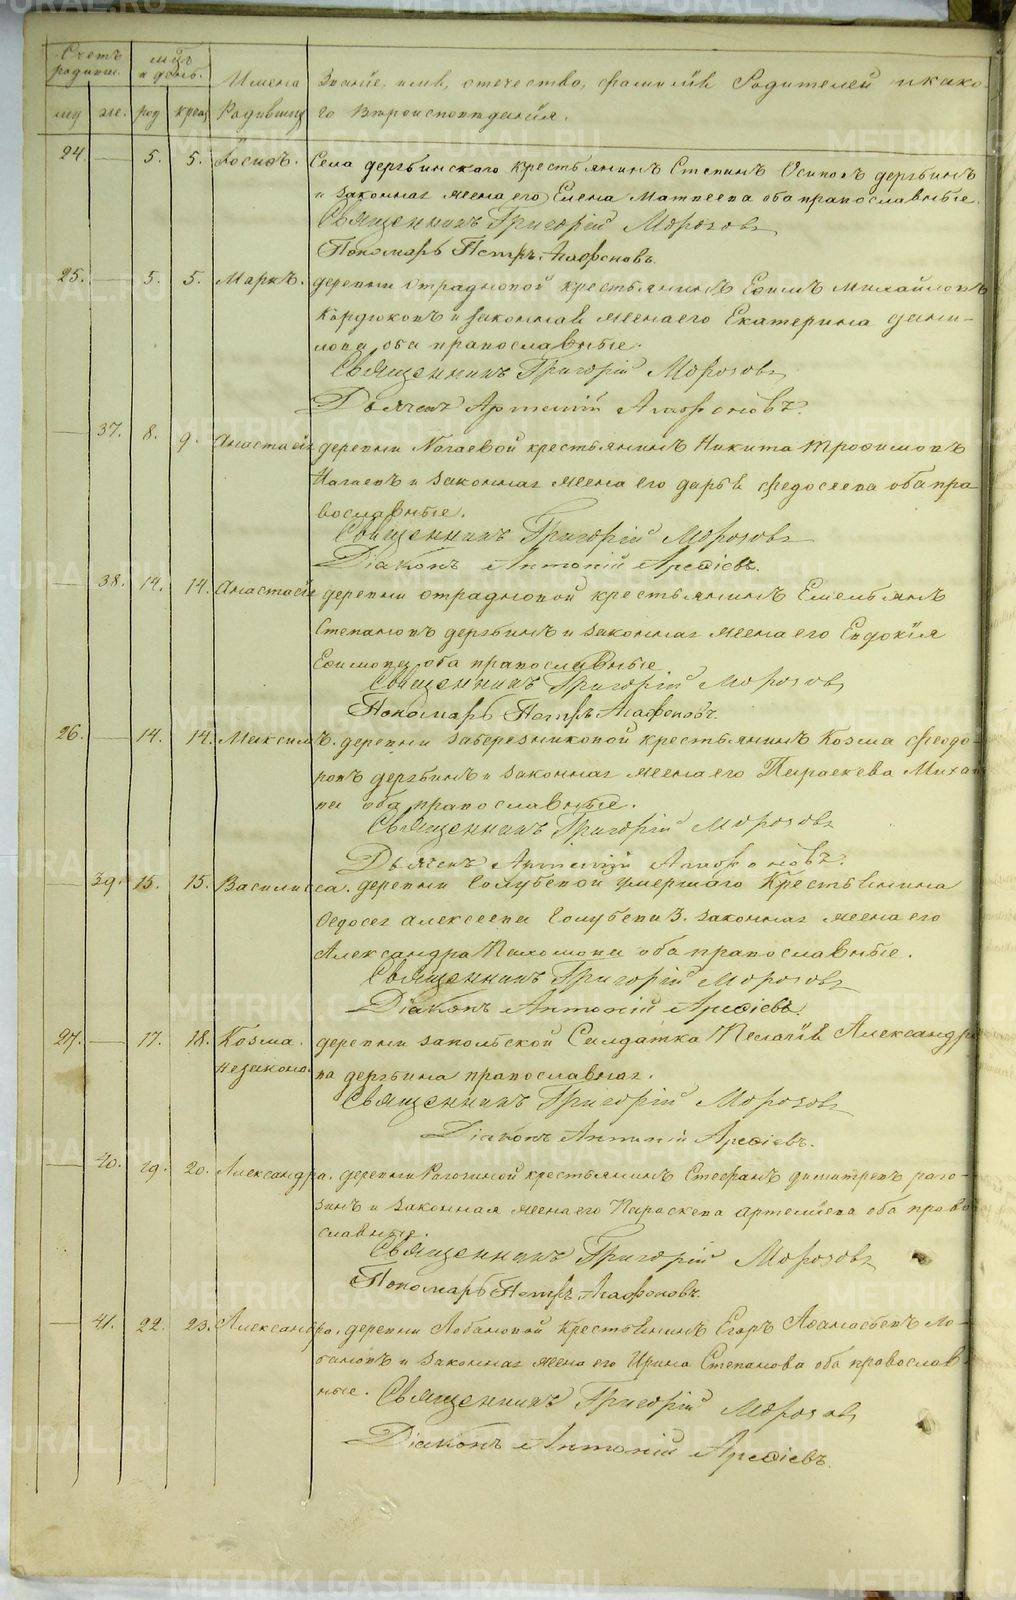 Счетъ родивш. мцъ и день. Имена Званіе, имя, отечество, фамилія Родителей и како-
му же. род крещ Родившихся го вѣроисповѣданія.
24. — 5. 5. Іосифъ. Села дерябинскаго крестьянинъ Степанъ Осиповъ дерябинъ
и законная жена его Елена Матвеева оба православные.
Священникъ Григорій Морозовъ
Пономарь Петръ Агафоновъ.
25. — 5. 5. Маркъ. деревни отрадновой крестьянинъ Ефимъ Михайловъ
Кордюковъ и законная жена его Екатерина дани-
лова, оба православные.
Священникъ Григорій Морозовъ
Дьячекъ Артемій Агафоновъ.
— 37. 8. 9. Анастасія деревни Нагаевой крестьянинъ Никита Трофимовъ
Нагаевъ и законная жена его дарья федосеева оба пра-
вославные.
Священникъ Григорій Морозовъ
Діаконъ Антоній Арефіевъ.
— 38. 14. 14. Анастасія деревни отрадновой крестьянинъ Емельянъ
Степановъ дерябинъ и законная жена его Евдокія
Ефимова, оба православные
Священникъ Григорій Морозовъ
Пономарь Петръ Агафоновъ.
26. — 14. 14. Максимъ. деревни заберезниковой крестьянинъ Козма феодо-
ровъ дерябинъ и законная жена его Параскева Михай
ва оба православные.
Священникъ Григорій Морозовъ
Дьячекъ Артемій Агафоновъ.
— 39. 15. 15. Василисса. деревни Голубевой умершаго Крестьянина
Федосея алексеева Голубева З. законная жена его
Александра Пахомова оба православные.
Священникъ Григорій Морозовъ
Діаконъ Антоній Арефіевъ.
27. — 17. 18. Козма. деревни запольской Салдатка Пелагія Александро
незаконн. ва дерябина православная.
Священникъ Григорій Морозовъ
Діаконъ Антоній Арефіевъ.
— 40. 19. 20. Александра. деревни Рагозиной крестьянинъ Стефанъ димитревъ раго-
зинъ и законная жена его Параскева артемиева оба право
славные.
Священникъ Григорій Морозовъ
Пономарь Петръ Агафоновъ.
— 41. 22. 23. Александра. деревни Лобановой крестьянинъ Егоръ Афанасьевъ Ло-
бановъ и законная жена его Ирина Степанова оба православ-
ные. Священникъ Григорій Морозовъ
Діаконъ Антоній Арефіевъ.
METRIKI.GASO-URAL.RU